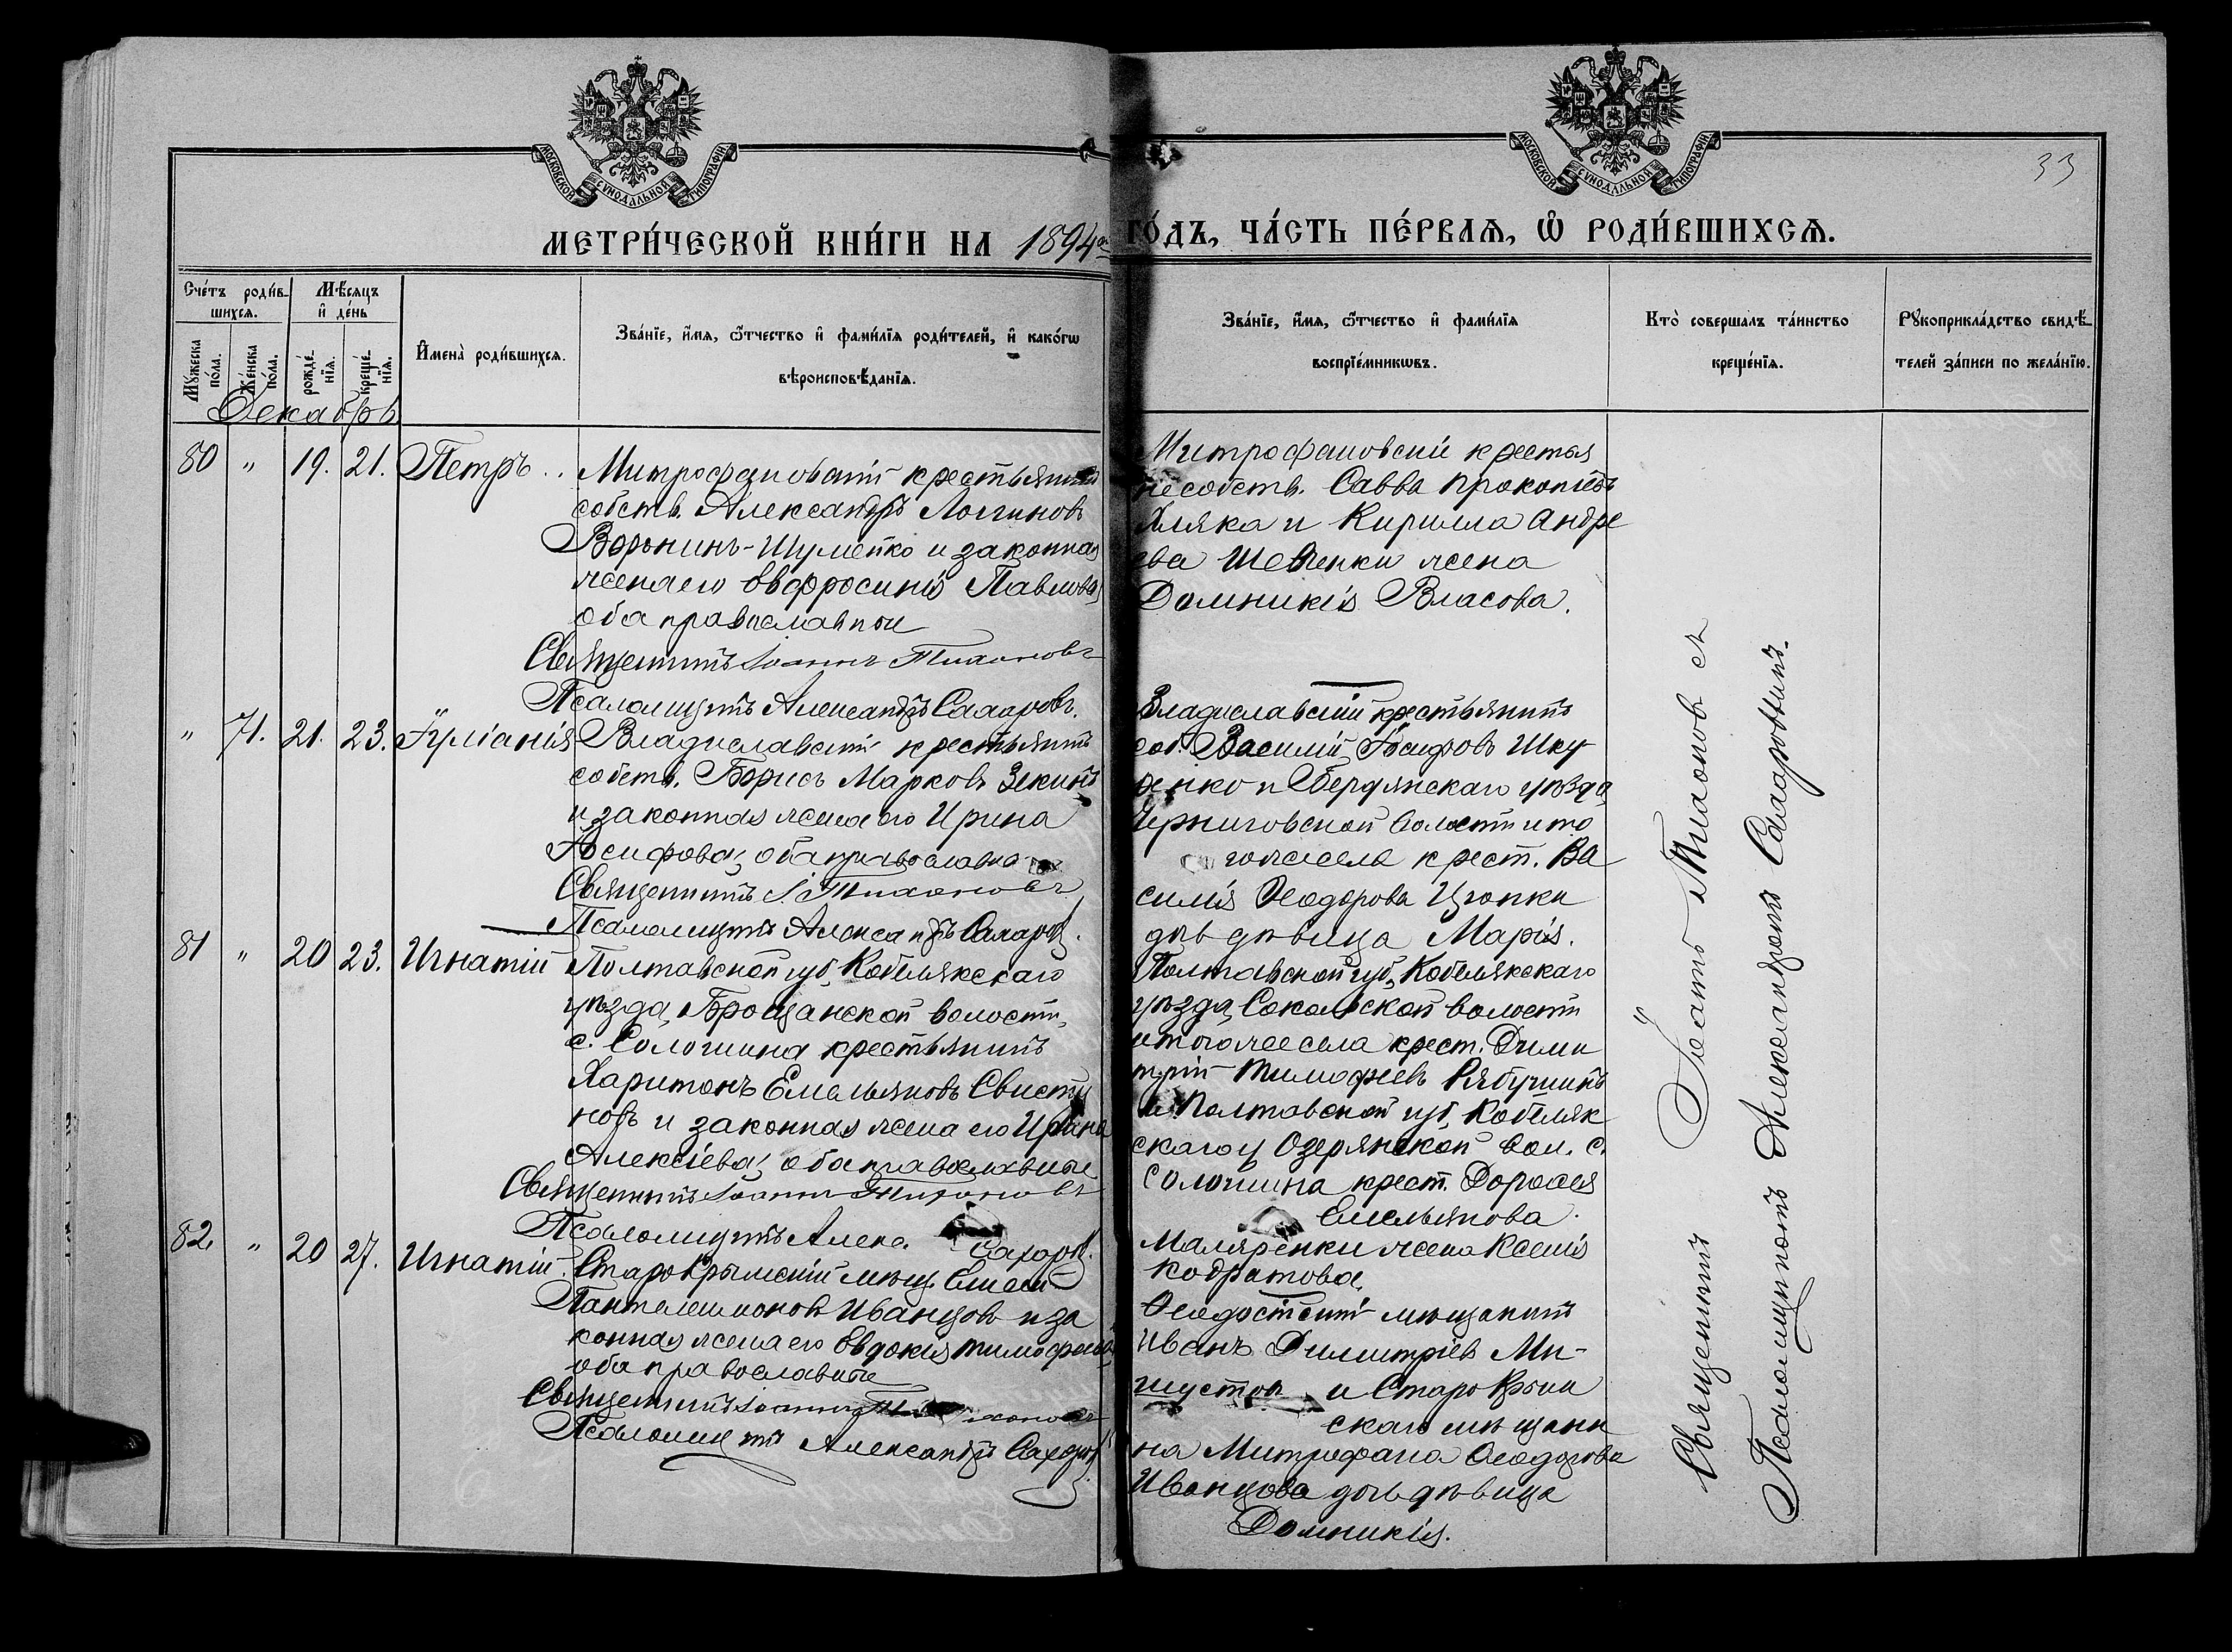 МОСКОВСКОЙ СѴНОДАЛЬНОЙ ТИПОГРАФІИ
МОСКОВСКОЙ СѴНОДАЛЬНОЙ ТИПОГРАФІИ
33
МЕТРИ́ЧЕСКОЙ КНИ́ГИ НА 1894 ГО́ДЪ, ЧА́СТЬ ПЕ́РВАѦ, Ѡ҆ РОДИ́ВШИХСѦ.
Сче́тъ роди́в-
шихсѧ.
Мѣ́сѧцъ
и҆ де́нь
Мꙋ́жеска по́ла.
Же́нска по́ла.
рожде́-нїѧ.
креще́-нїѧ.
И҆мена̀ роди́вшихсѧ.
Зва́нїе, и҆́мѧ, ѻ҆́тчество и҆ фами́лїѧ роди́телей, и҆ како́гѡ
вѣроисповѣ́данїѧ.
Зва́нїе, и҆́мѧ, ѻ҆́тчество и҆ фами́лїѧ
воспрїе́мникѡвъ.
Кто̀ соверша́лъ та́инство
креще́нїѧ.
Рꙋкоприкла́дство свидѣ́-
телей за́писи по жела́нїю.
Декабрь
80 " 19. 21. Петръ..
Митрофановскій крестьянинъ
собств. Александръ Логиновъ
Воронинъ-Шуметко и законная
жена его Евфросинія Павлова,
оба православные
Священникъ Іоаннъ Тихоновъ
Псаломщикъ Александръ Сахаровъ.
Митрофановскій крестья
не собств. Савва Прокопіевъ
Хляка и Кирилла Андре
ева Шевченки жена
Домникія Власова.
" 71. 21. 23. Іуліанія
Владиславскій крестьянинъ
собств. Борисъ Марковъ Зекинъ
и законная жена его Ирина
Іосифова, оба православна
Священникъ І. Тихоновъ
Псаломщикъ Александръ Сахаровъ.
Владиславскій крестьянинъ
соб. Василій Іосифовъ Шку
ренко и Бердянскаго уѣзда
Черниговской волости и то
гоже села крест. Ва
силія Ѳеодорова Цюпки
дочь дѣвица Марія.
81 " 20 23. Игнатій
Полтавской губ, Кобелякскаго
уѣзда, Брощанской волости,
с. Солошина крестьянинъ
Харитонъ Емельяновъ Свисту
новъ и законная жена его Ирина
Алексіева, оба православные
Священникъ Іоаннъ Тихоновъ
Псаломщикъ Алекс. Сахаровъ.
Полтавской губ, Кобелякскаго
уѣзда, Сокольской волости
и того же села крест. Дими
трій Тимофеевъ Рябушинъ
и Полтавской губ, Кобеляк
скаго у Озерянской вол. с.
Солошина крест. Дорофея
Емельянова
Маляренки жена Ксенія
Кодратова,
82, " 20 27. Игнатій.
Старокрымскій мѣщ.
Пантелеимоновъ Иванцовъ и за
конная жена его Евдокія Тимофеева
оба православные
Священникъ Іоаннъ Тихоновъ
Псаломщикъ Александръ Сахаровъ
Ѳеодосійскій мѣщанинъ
Иванъ Димитріевъ Ми-
шустов и Старо Крым
скаго мѣщани
на Митрофана Ѳеодорова
Иванцова дочь дѣвица
Домникія.
Священникъ Іоаннъ Тихоновъ съ
Псаломщикомъ Александромъ Сахаровымъ.